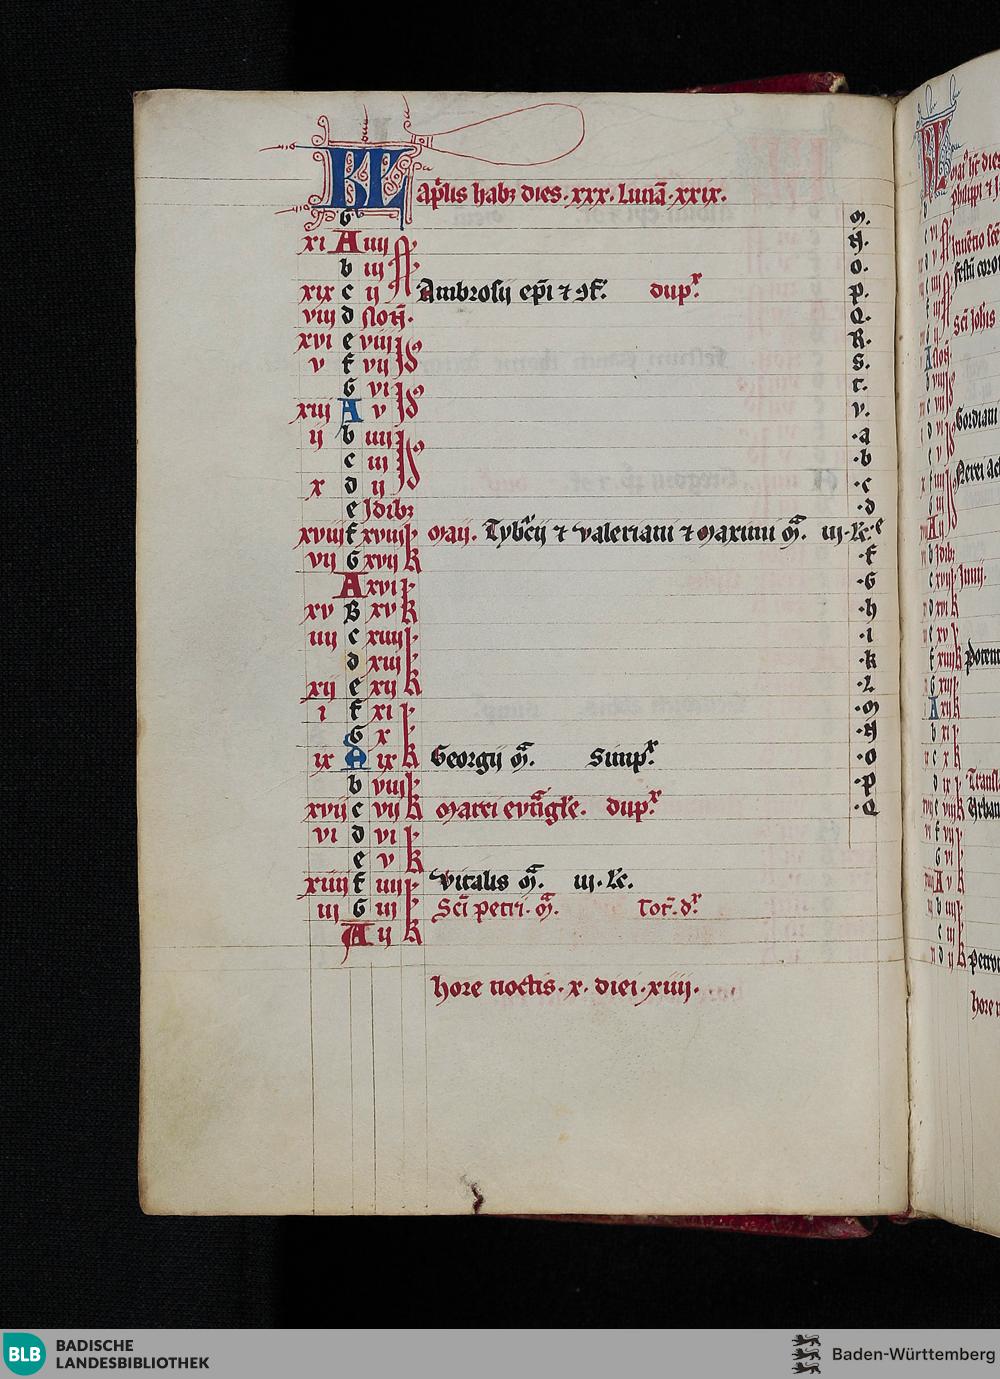 KL Ap̄lis habꝫ dies · xxx · Lunā · xxix ·
G M.
xi A iiij N.
b iij O.
xix c ij Ambrosij ep̄i ⁊ ꝯf. dupˣ. P.
viij d Noñ. Q.
xvi e viij Id R.
v f vij Id S.
G vi Id T.
xiij A v Id V.
ij b iiij Id ·a
c iij Id ·b
x d ij Id ·c
e Idibꝫ ·d
xviij f xviij k Maij. Tyb̄cij ⁊ Valeriani ⁊ Maximi m̄. iij · lc̄ · e
vij G xvij k ·f
A xvi k ·G
xv B xv k ·h
iiij c xiiij k ·i
d xiij k ·k
xij e xij k ·L
i f xi k ·M
G x k ·N
ix A ix k Georgij m̄. Simpˣ. ·O
b viij k ·P
xvij c vij k Marci evāgle. dupˣ. ·Q
vi d vi k
e v k
xiiij f iiij k Vitalis m̄. iij · lc̄.
iij G iij k Sc̄i petri · m̄. Tot̄. dˣ.
A ij k
hore noctis · x · diei · xiiij ·
BLB BADISCHE LANDESBIBLIOTHEK
Baden-Württemberg